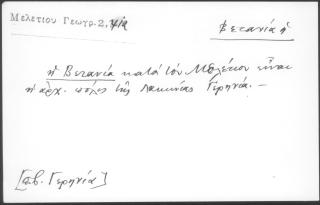 Μελετίου Γεωγρ.2,
Βετανία ἡ
ἡ Βετανία κατὰ τὸν Μελέτιον εἶναι
ἡ ἀρχ. πόλις τῆς Λακωνίας Γερηνία.—
[πβ. Γερηνία]